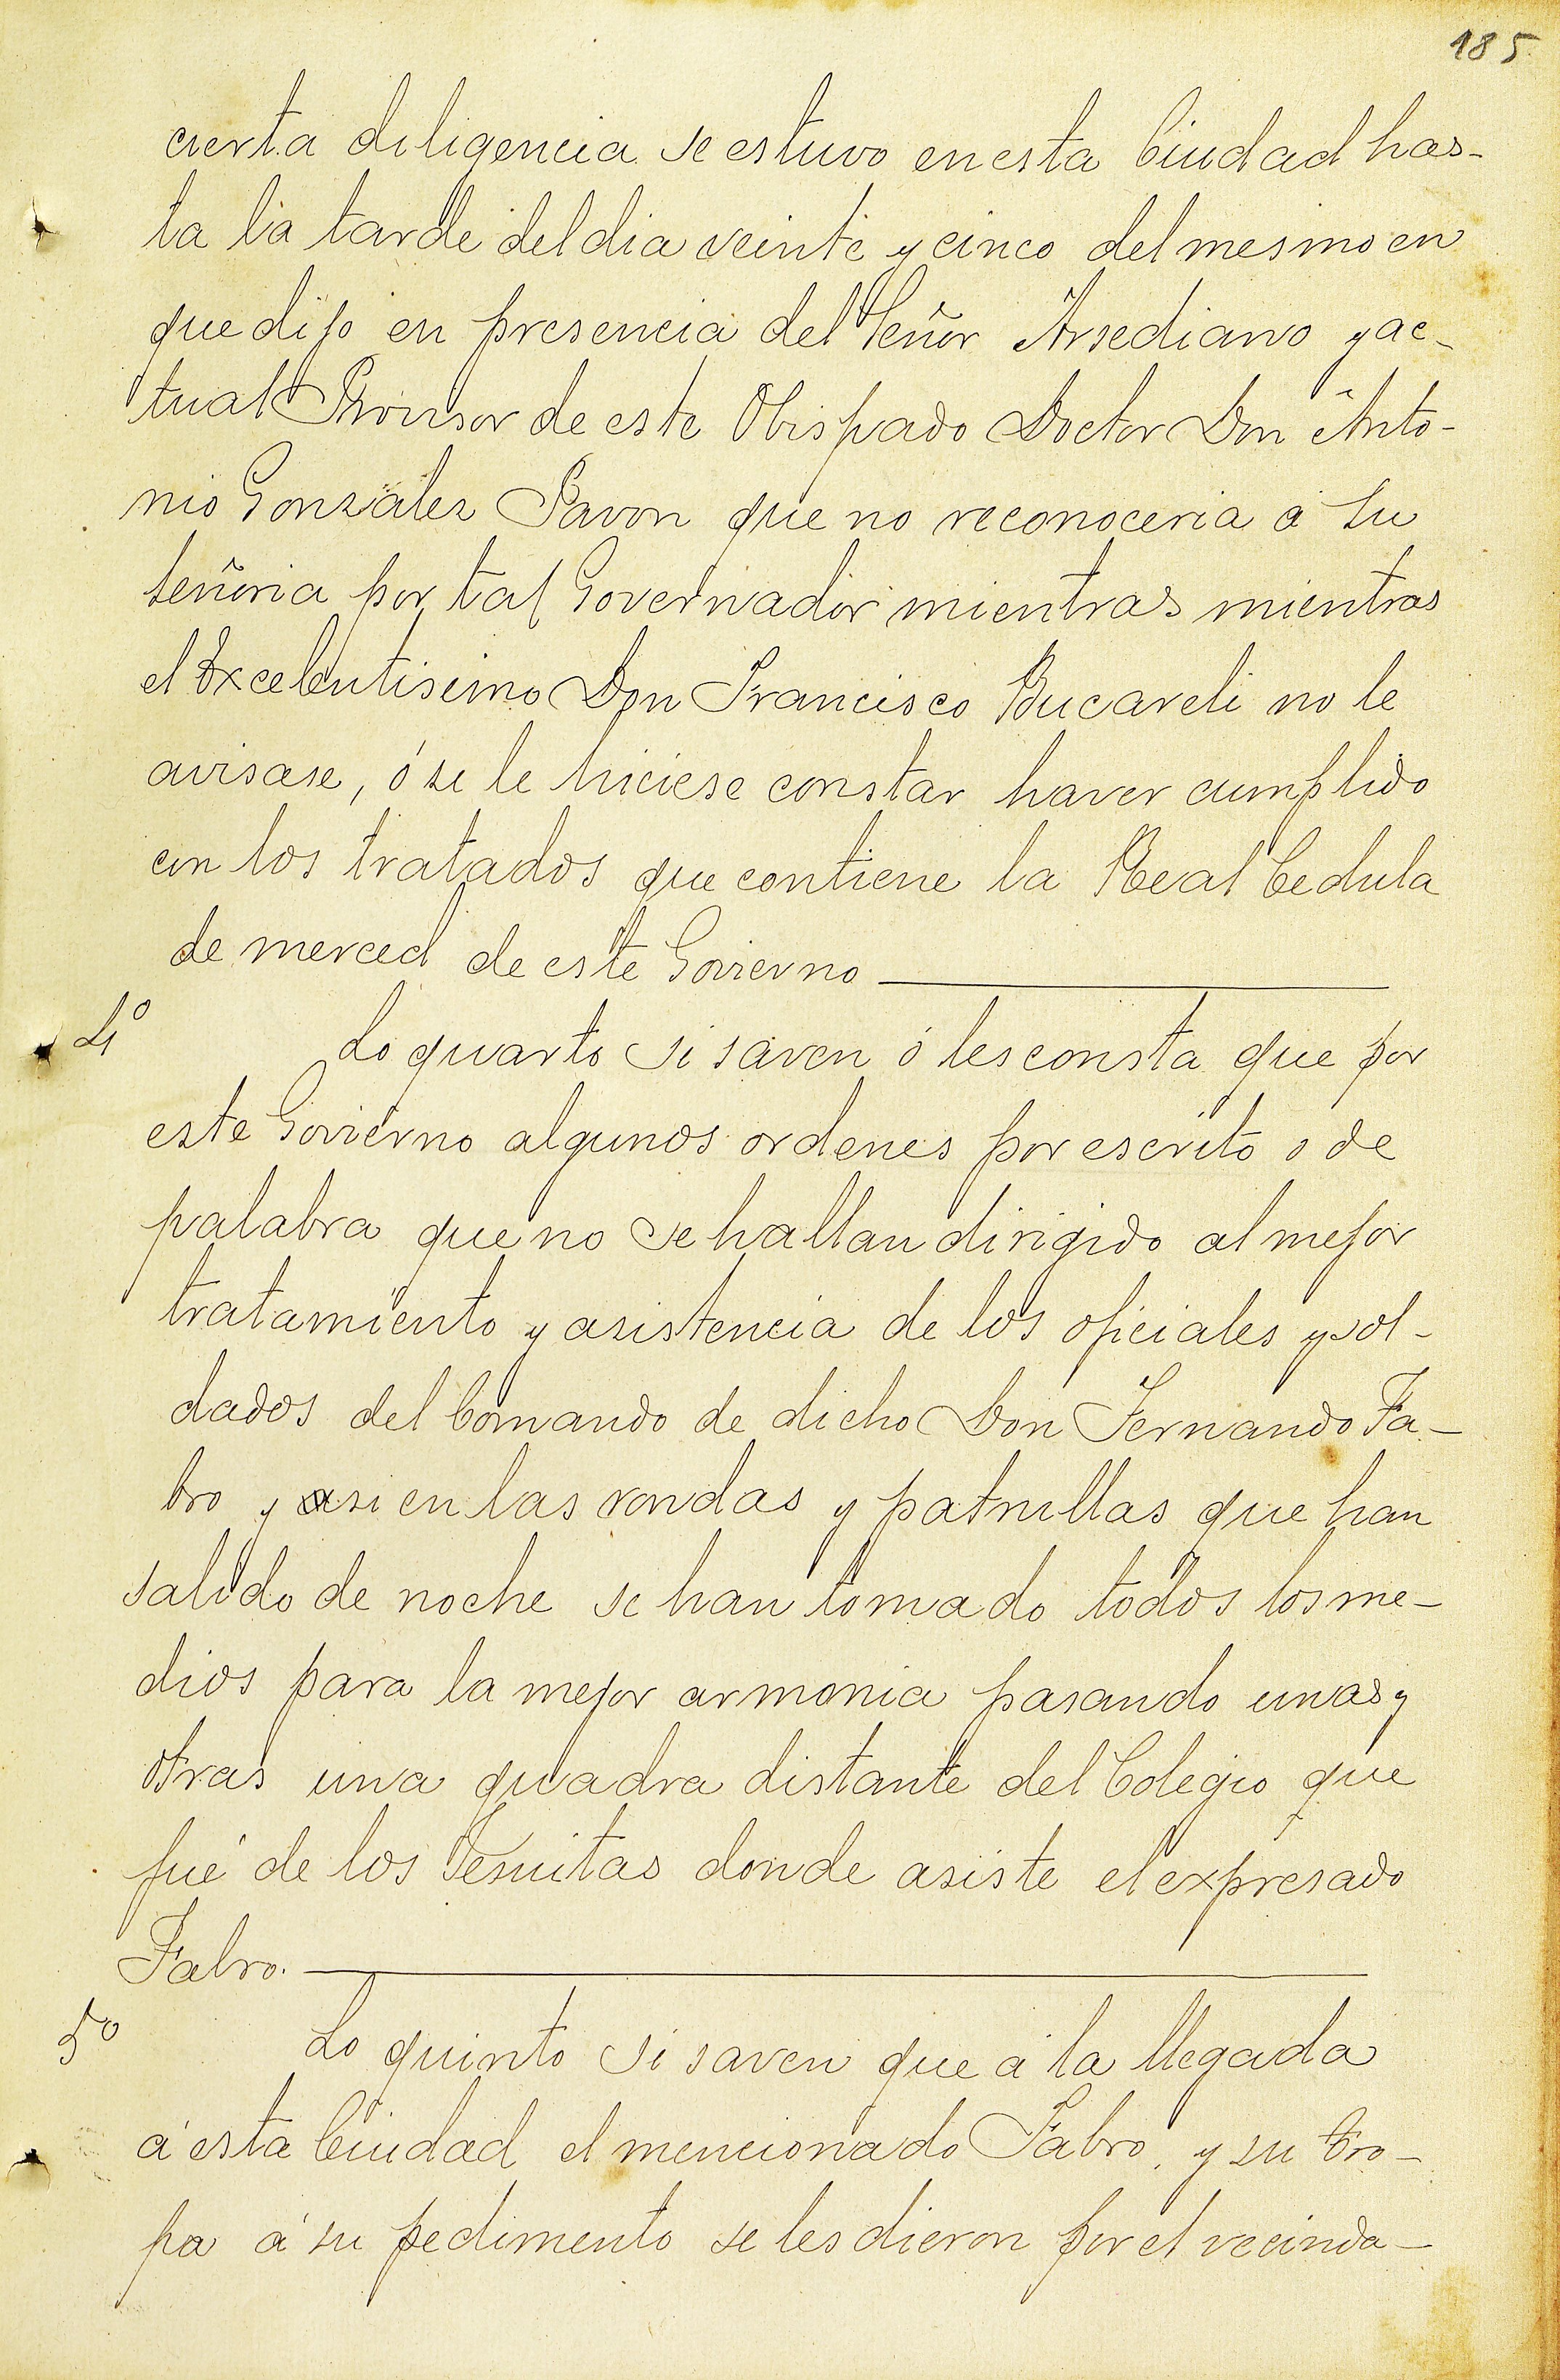 185
cierta diligencia se estuvo en esta Ciudad has-
ta la tarde del dia veinte y cinco del mesmo en
que dijo en presencia del Señor Arsediano y ac-
tual Provisor de este Obispado Doctor Don Anto-
nio Gonzalez Pavon que no reconoceria á su
señoria por tal Governador mientras mientras
el Excelentisimo Don Francisco Bucareli no le
avisase, ó se le hiciese constar haver cumplido
con los tratados que contiene la Real Cedula
de merced de este Govierno
4º Lo quarto si saven ó les consta que por
este Govierno algunos ordenes por escrito o de
palabra que no se hallan dirigido al mejor
tratamiento y asistencia de los oficiales y sol-
dados del Comando de dicho Don Fernando Fa-
bro y asi en las rondas y patrullas que han
salido de noche se han tomado todos los me-
dios para la mejor armonia pasando unas y
otras una quadra distante del Colegio que
fué de los Jesuitas donde asiste el expresado
Fabro.
5º Lo quinto si saven que á la llegada
á esta Ciudad el mencionado Fabro, y su tro-
pa á su pedimento se les dieron por el vecinda-